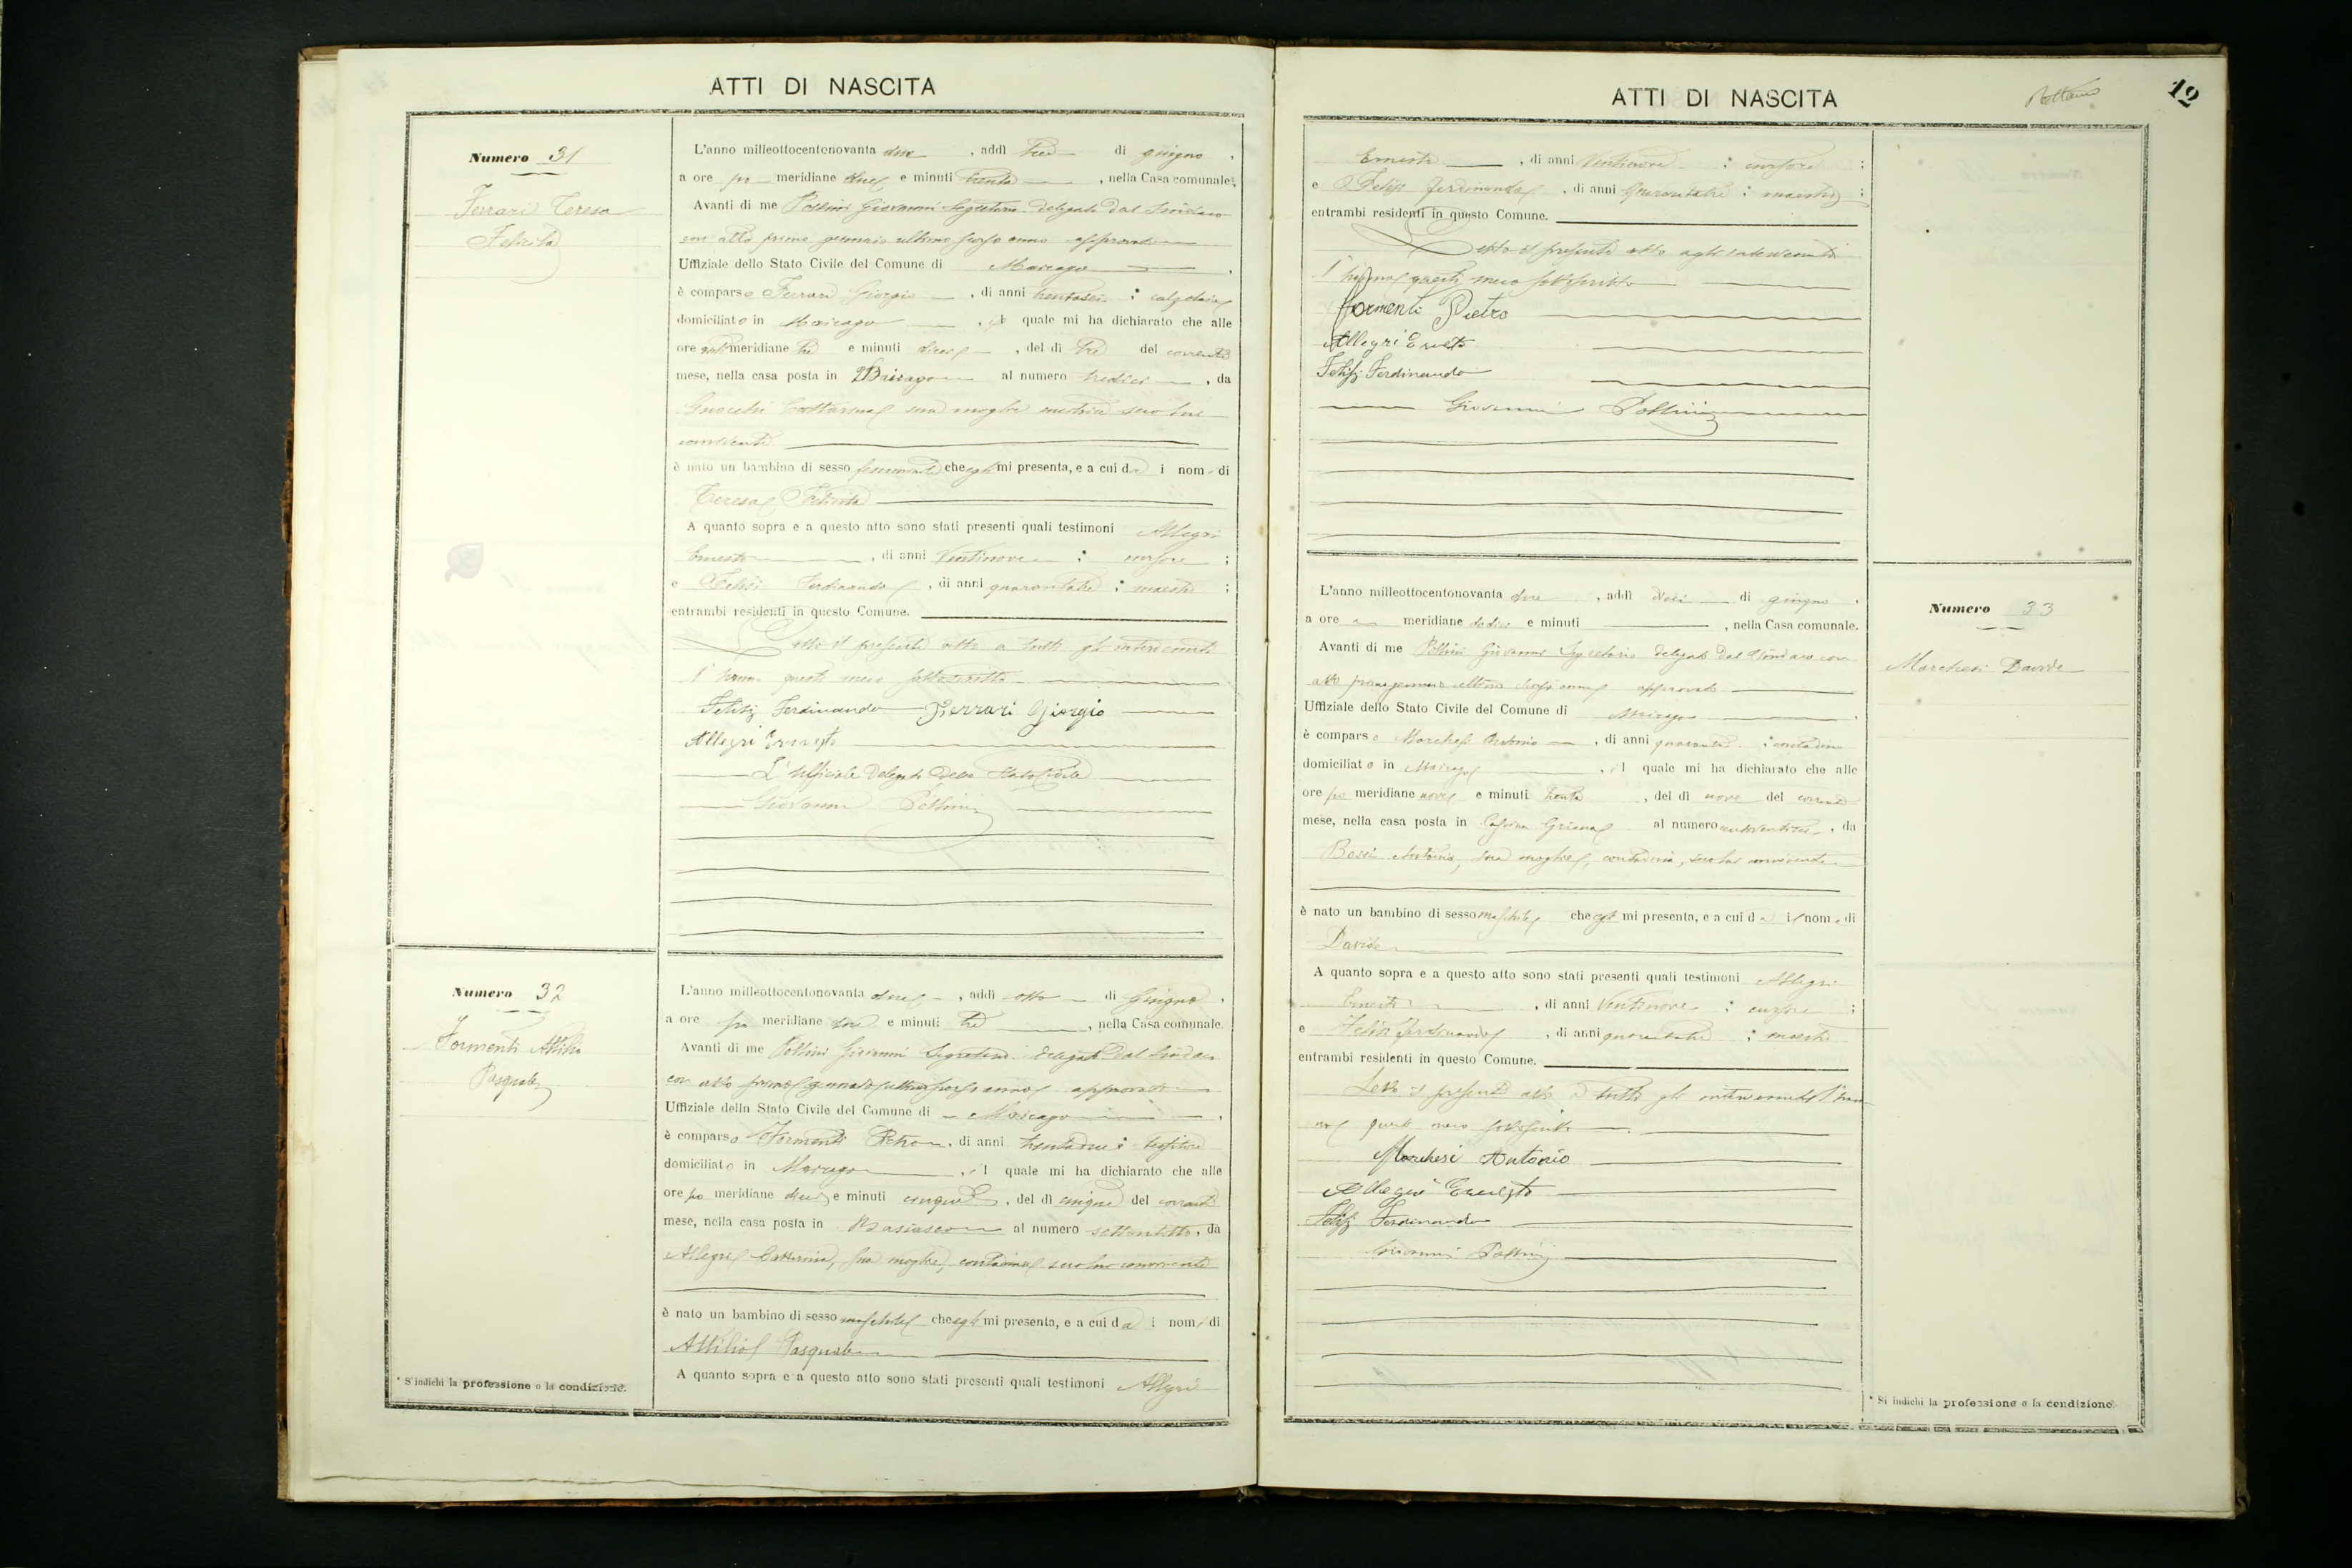 ATTI DI NASCITA
Numero 31
Ferrari Teresa
Felicita
L'anno milleottocentonovanta due, addì tre di giugno,
a ore po meridiane due e minuti trenta, nella Casa comunale.
Avanti di me Pollini Giovanni Segretario delegato dal Sindaco
con atto primo gennaio ultimo scorso anno approvato
Uffiziale dello Stato Civile del Comune di Mairago.
è comparso Ferrari Giorgio, di anni trentasei: calzolaio
domiciliato in Mairago, il quale mi ha dichiarato che alle
ore anti meridiane tre e minuti dieci, del dì tre del corrente
mese, nella casa posta in Mairago al numero tredici, da
sua moglie seco lui
convivente
è nato un bambino di sesso femminile che egli mi presenta, e a cui dà i nomi di
Teresa Felicita
A quanto sopra e a questo atto sono stati presenti quali testimoni Allegri
Ernesto, di anni Ventinove: cursore;
e Felisi Ferdinando, di anni quarantatre: maestro;
entrambi residenti in questo Comune.
Letto il presente atto a tutti gli intervenuti
l'hanno questi meco sottoscritto
Felisi Ferdinando Ferrari Giorgio
Allegri Ernesto
L'Ufficiale Delegato dello Stato Civile
Giovanni Pollini
Numero 32
Formenti Attilio
Pasquale
L'anno milleottocentonovanta due, addì otto di Giugno,
a ore po meridiane due e minuti tre, nella Casa comunale.
Avanti di me Pollini Giovanni Segretario delegato dal Sindaco
con atto primo gennaio ultimo scorso anno approvato
Uffiziale dello Stato Civile del Comune di Mairago.
è comparso Formenti Pietro, di anni trentadue:
domiciliato in Mairago, il quale mi ha dichiarato che alle
ore po meridiane dieci e minuti cinque, del dì cinque del corrente
mese, nella casa posta in Basiasco al numero settantotto, da
Allegri Catterina, sua moglie, contadina seco lui convivente
è nato un bambino di sesso maschile che egli mi presenta, e a cui dà i nomi di
Attilio Pasquale
A quanto sopra e a questo atto sono stati presenti quali testimoni Allegri
* Si indichi la professione o la condizione.
ATTI DI NASCITA
12
Ernesto, di anni Ventinove: cursore;
e Felisi Ferdinando, di anni Quarantatre: maestro;
entrambi residenti in questo Comune.
Letto il presente atto agli intervenuti
l'hanno questi meco sottoscritto
Formenti Pietro
Allegri Ernesto
Felisi Ferdinando
Giovanni Pollini
Numero 33
Marchesi Davide
L'anno milleottocentonovanta due, addì dieci di giugno,
a ore meridiane dodici e minuti, nella Casa comunale.
Avanti di me Pollini Giovanni Segretario delegato dal Sindaco con
atto primo gennaio ultimo scorso anno approvato
Uffiziale dello Stato Civile del Comune di Mairago.
è comparso Marchesi Antonio, di anni quaranta: contadino
domiciliato in Mairago, il quale mi ha dichiarato che alle
ore po meridiane nove e minuti trenta, del dì nove del corrente
mese, nella casa posta in Cascina Griona al numero, da
Bossi Antonia, sua moglie, contadina, seco lui convivente
è nato un bambino di sesso maschile che egli mi presenta, e a cui dà il nome di
Davide
A quanto sopra e a questo atto sono stati presenti quali testimoni Allegri
Ernesto, di anni Ventinove: cursore;
e Felisi Ferdinando, di anni quarantatre: maestro
entrambi residenti in questo Comune.
Letto il presente atto a tutti gli intervenuti l'han-
no questi meco sottoscritto
Marchesi Antonio
Allegri Ernesto
Felisi Ferdinando
Giovanni Pollini
* Si indichi la professione o la condizione.